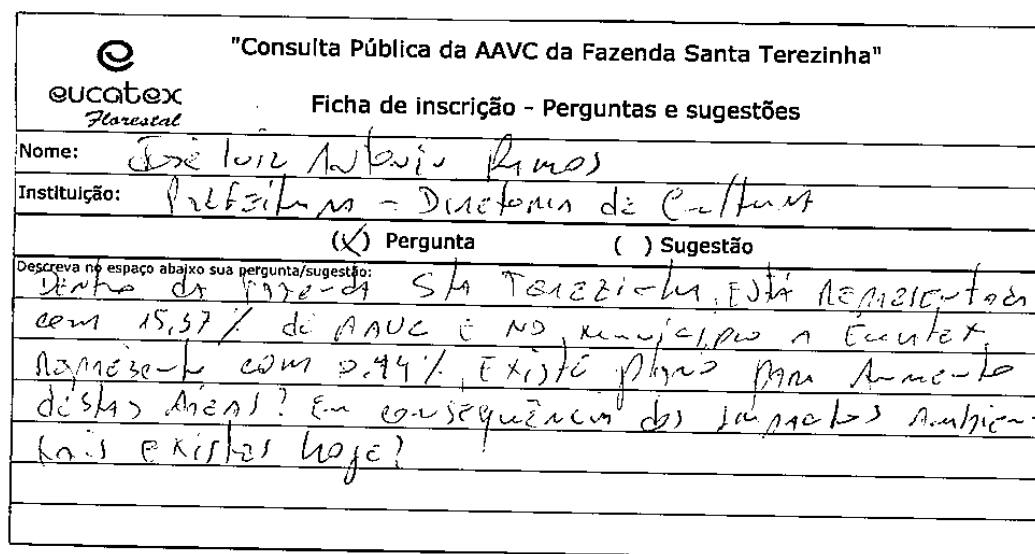 "Consulta Pública da AAVC da Fazenda Santa Terezinha"
eucatex
Florestal
Ficha de inscrição - Perguntas e sugestões
Nome: José Luiz Antonio Ramos
Instituição: Prefeitura - Diretoria de Cultura
(X) Pergunta ( ) Sugestão
Descreva no espaço abaixo sua pergunta/sugestão:
Dentro da Fazenda Sta Terezinha, Está Representada
com 15,37% de AAVC e no município a Eucatex,
Representa com 0.94%, Existe plano para Aumento
destas Áreas? Em consequência dos impactos Ambien-
tais existes hoje?